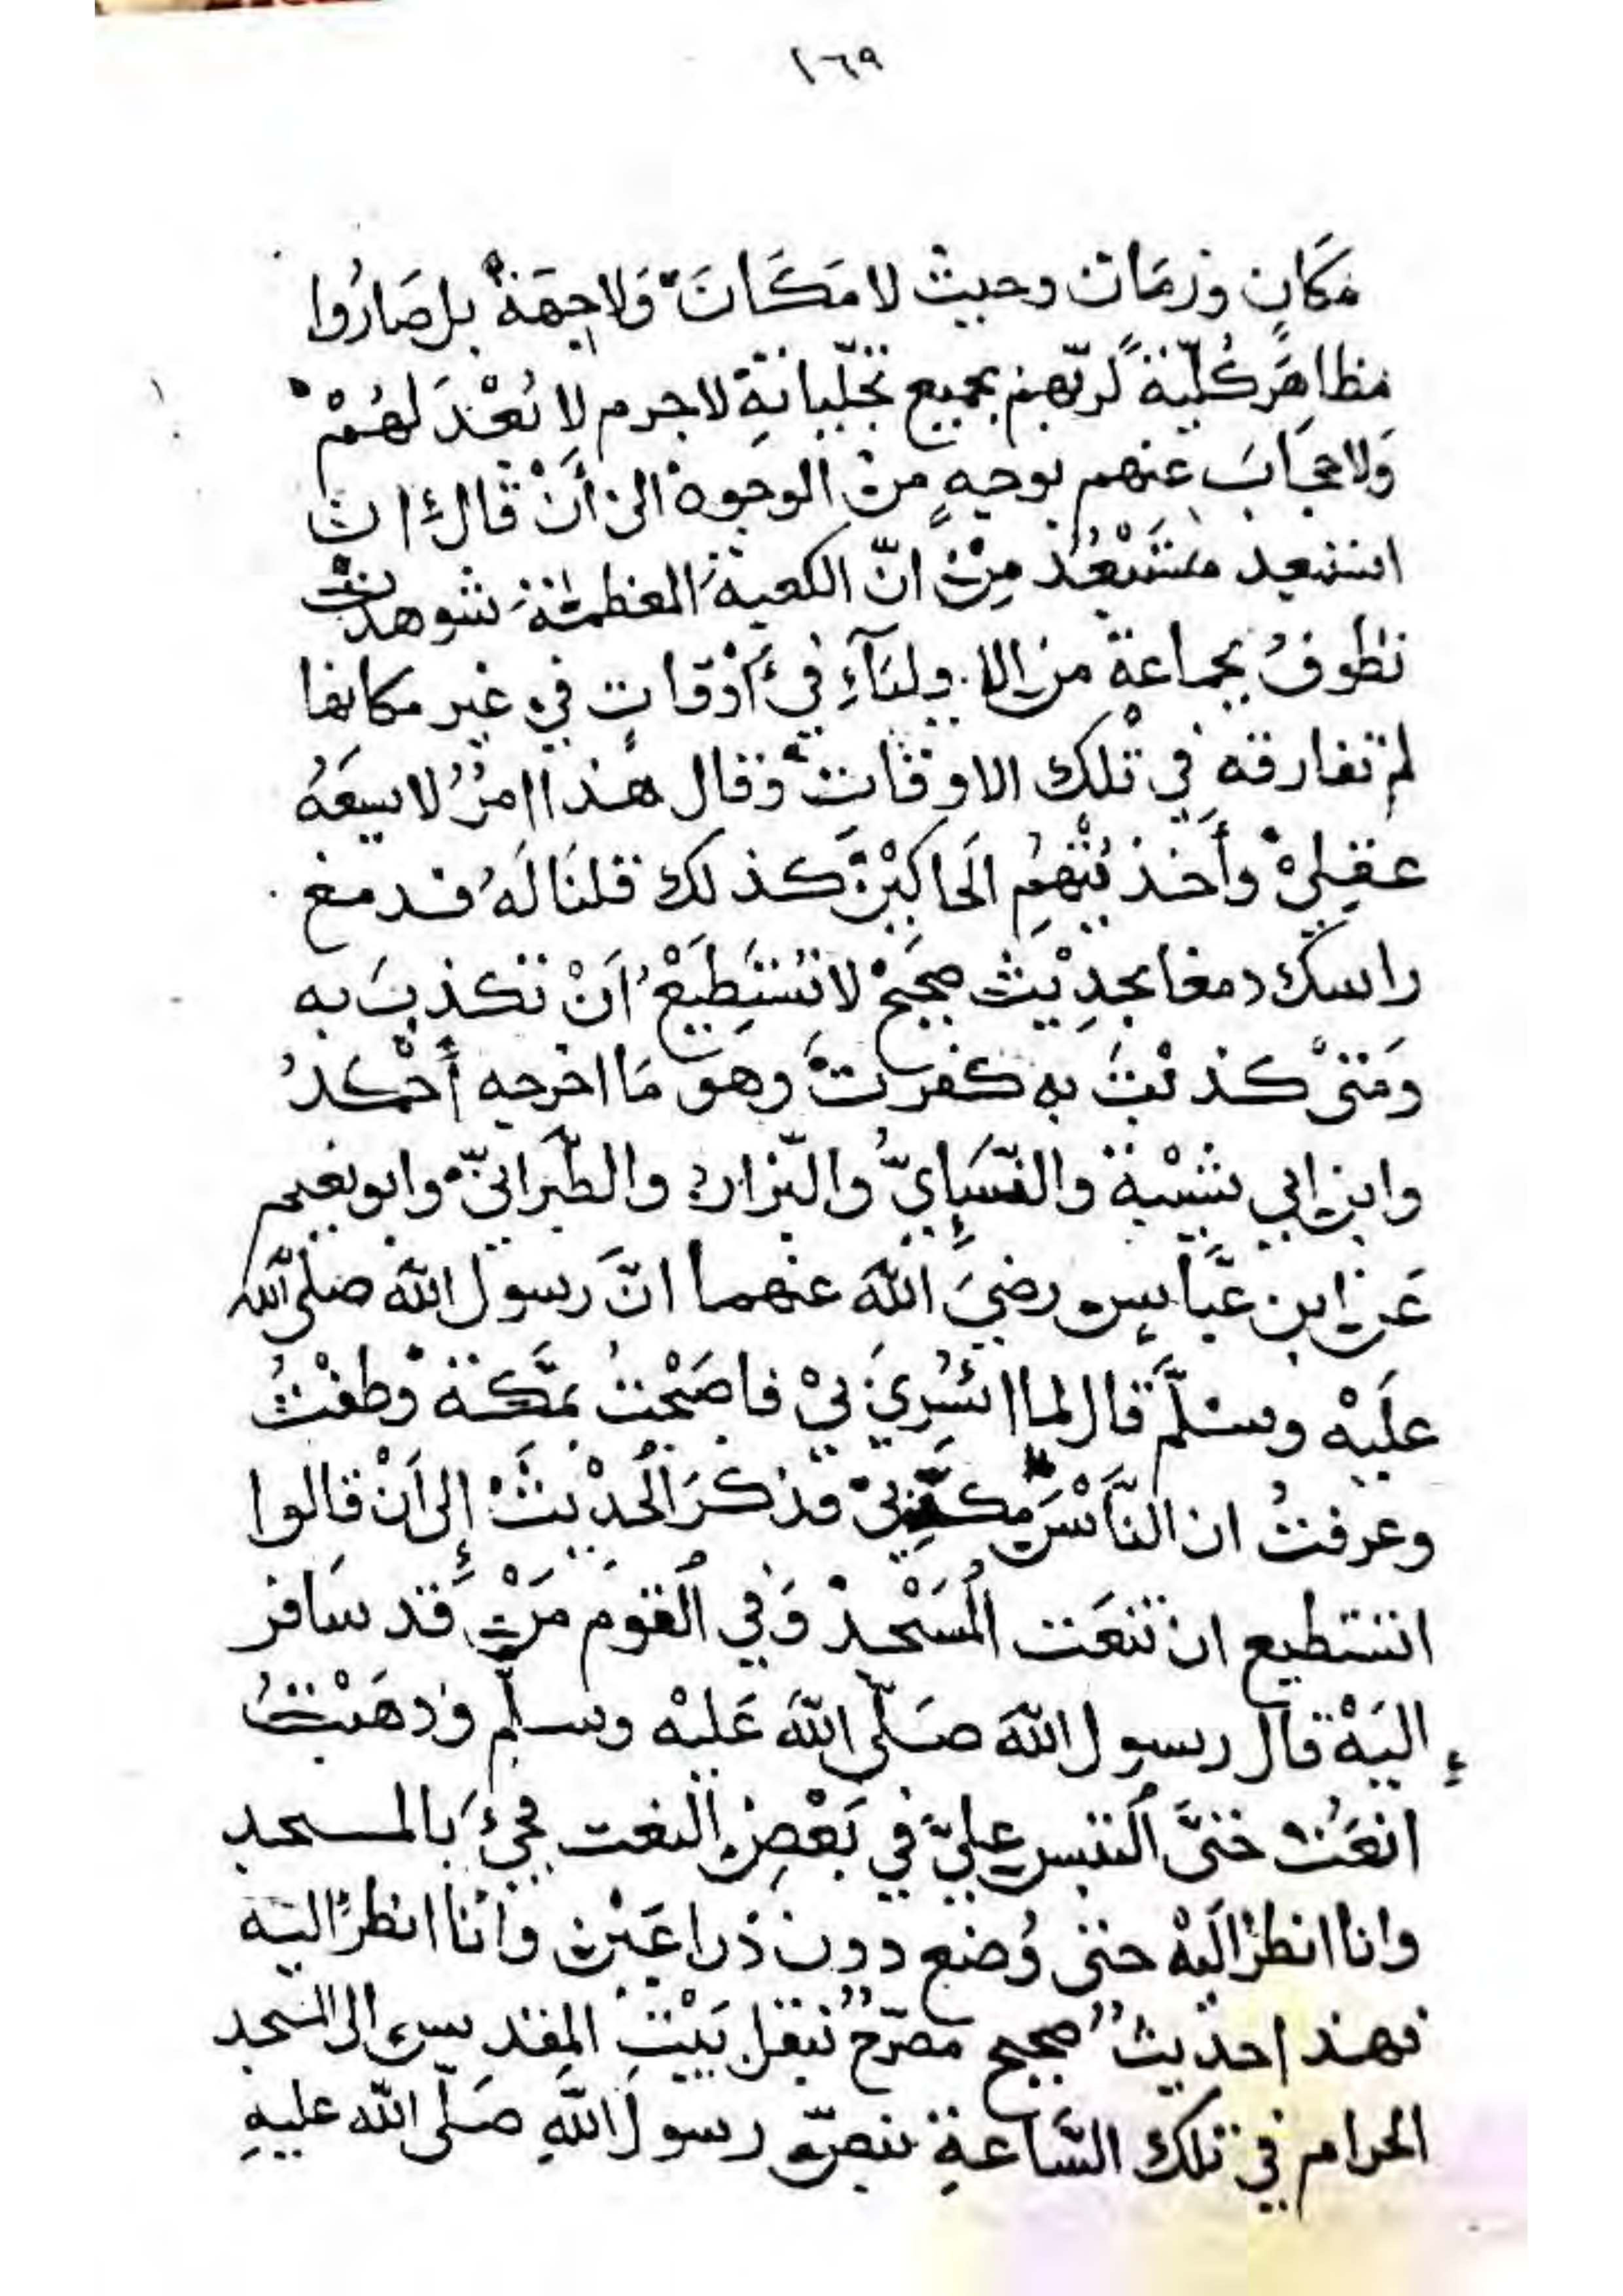 ١٦٩
مَكَانٍ وزمَان وحيث لا مَكَانَ وَلا جِهَةْ بل صَارُوا
مظاهَر كُلّيّةً لربّهم بجميع تجلّياتهِ لاجرم لا بُعْدَ لهُمْ
وَلا حجَابَ عنهم بوجهٍ من الوجوه الى أنْ قَال ان
استبعد مُسْتَبْعُد مِنْ انّ الكعبة المعظمة شوهدت
تطوفُ بجماعة من الاولياَءِ في أوْقاتٍ في غير مكانها
لم تفارقه في تلك الاوقات وقال هذا امرٌ لا يسعَهُ
عقلِيْ وأَخذ يُتْهِمُ الَحاكِيْنَ كذلك قلنَا لَهُ قد دمغ
راسك دمغا بحدِيْث صحيحْ لا تسْتَطِيْعُ اَنْ تكذبَ به
وَمَتىْ كذبْتَ به كفرتَ وهو مَا اخرجه أَحْمَدُ
وابن ابي شيْبة والنّسَاِيُّ والبّزار والطّبَرانيّ وابو نعيم
عَن ابن عبَّاسٍ رضيَ اللهَ عنهما انَّ رسول اللهَ صلى الله
علَيْه وسلَّمَ قال لما اسُرِيَ بيْ فاصَبْحتُ بمَّكة وَطفْتُ
وعرفتُ ان النَّاسَ مكَذِّبىْ فذكَرَ الُحدِيْثَ إلى اَنْ قالوا
اتستطيع ان تنعَت المُسَْجدْ وَفي القُوم مَنْ قد سَافر
إليَهْ قال رسول اللهَ صَلّى اللهَ عَليْه وسلّم وذهَبْتُ
انعَتُ حَتىَّ اُلتبس علِيَّ في بَعْضِ النعت فجئَ بالمسجد
وانا انظرُ الَيْهْ حتى وُضع دون ذراعَيْن وانَا انظرُ اليَه
فهذا حديثٌ صحيح مصرّحٌ بنقل بَيْتِ المقدس الى المسجد
الحرام في تلك السَّاعةِ بنصّ رسول اللهِ صَلّى الله عليهِ